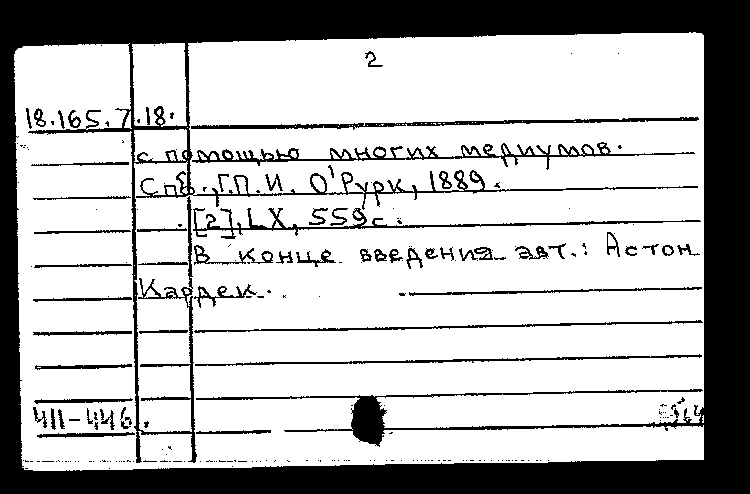 2
18.165.7.18.
с помощью многих медиумов.
Спб., Г.П.И. О'Рурк, 1889.
[2], LX, 559 с.
В конце введения авт.: Астон
Кардек.
411-446.